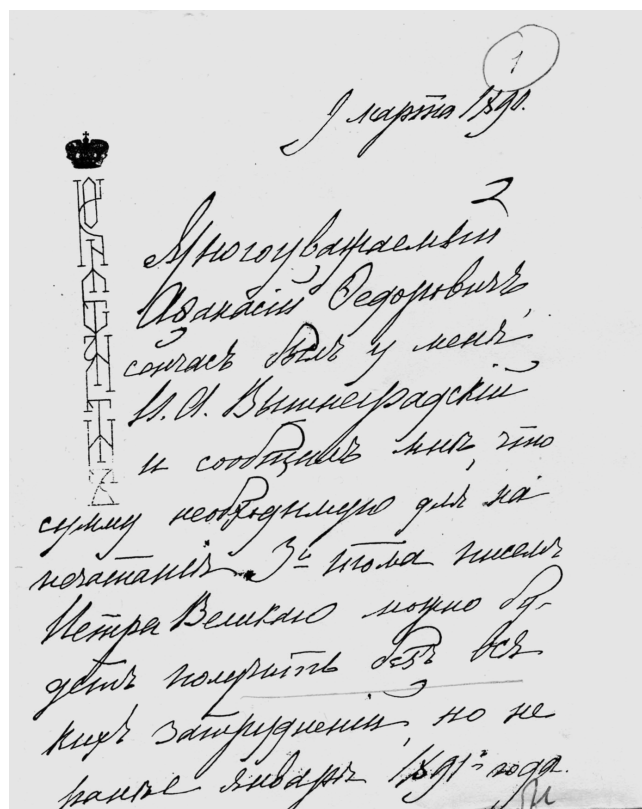 1
9 марта 1890.
2
Многоуважаемый
Афанасій Федоровичъ,
сейчасъ былъ у меня
И. А. Вышнеградскій
и сообщилъ мнѣ, что
сумму необходимую для на
печатанія 3го тома писемъ
Петра Великаго можно бу-
детъ получить безъ вся
кихъ затрудненій, но не
ранѣе января 1891го года.